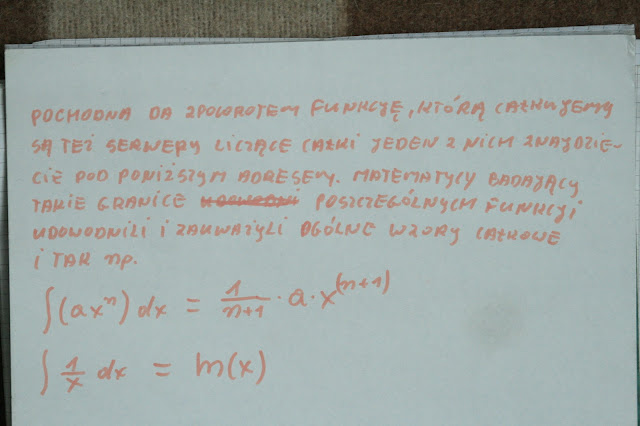 POCHODNA DA ZPOWROTEM FUNKCJĘ, KTÓRĄ CAŁKUJEMY
SĄ TEŻ SERWERY LICZĄCE CAŁKI JEDEN Z NICH ZNAJDZIE-
CIE POD PONIŻSZYM ADRESEM. MATEMATYCY BADAJĄCY
TAKIE GRANICE POSZCZEGÓLNYCH FUNKCJI
UDOWODNILI I ZAUWAŻYLI OGÓLNE WZORY CAŁKOWE
I TAK NP.
∫(axⁿ) dx = 1/(n+1) · a · x^(n+1)
∫ 1/x dx = ln(x)